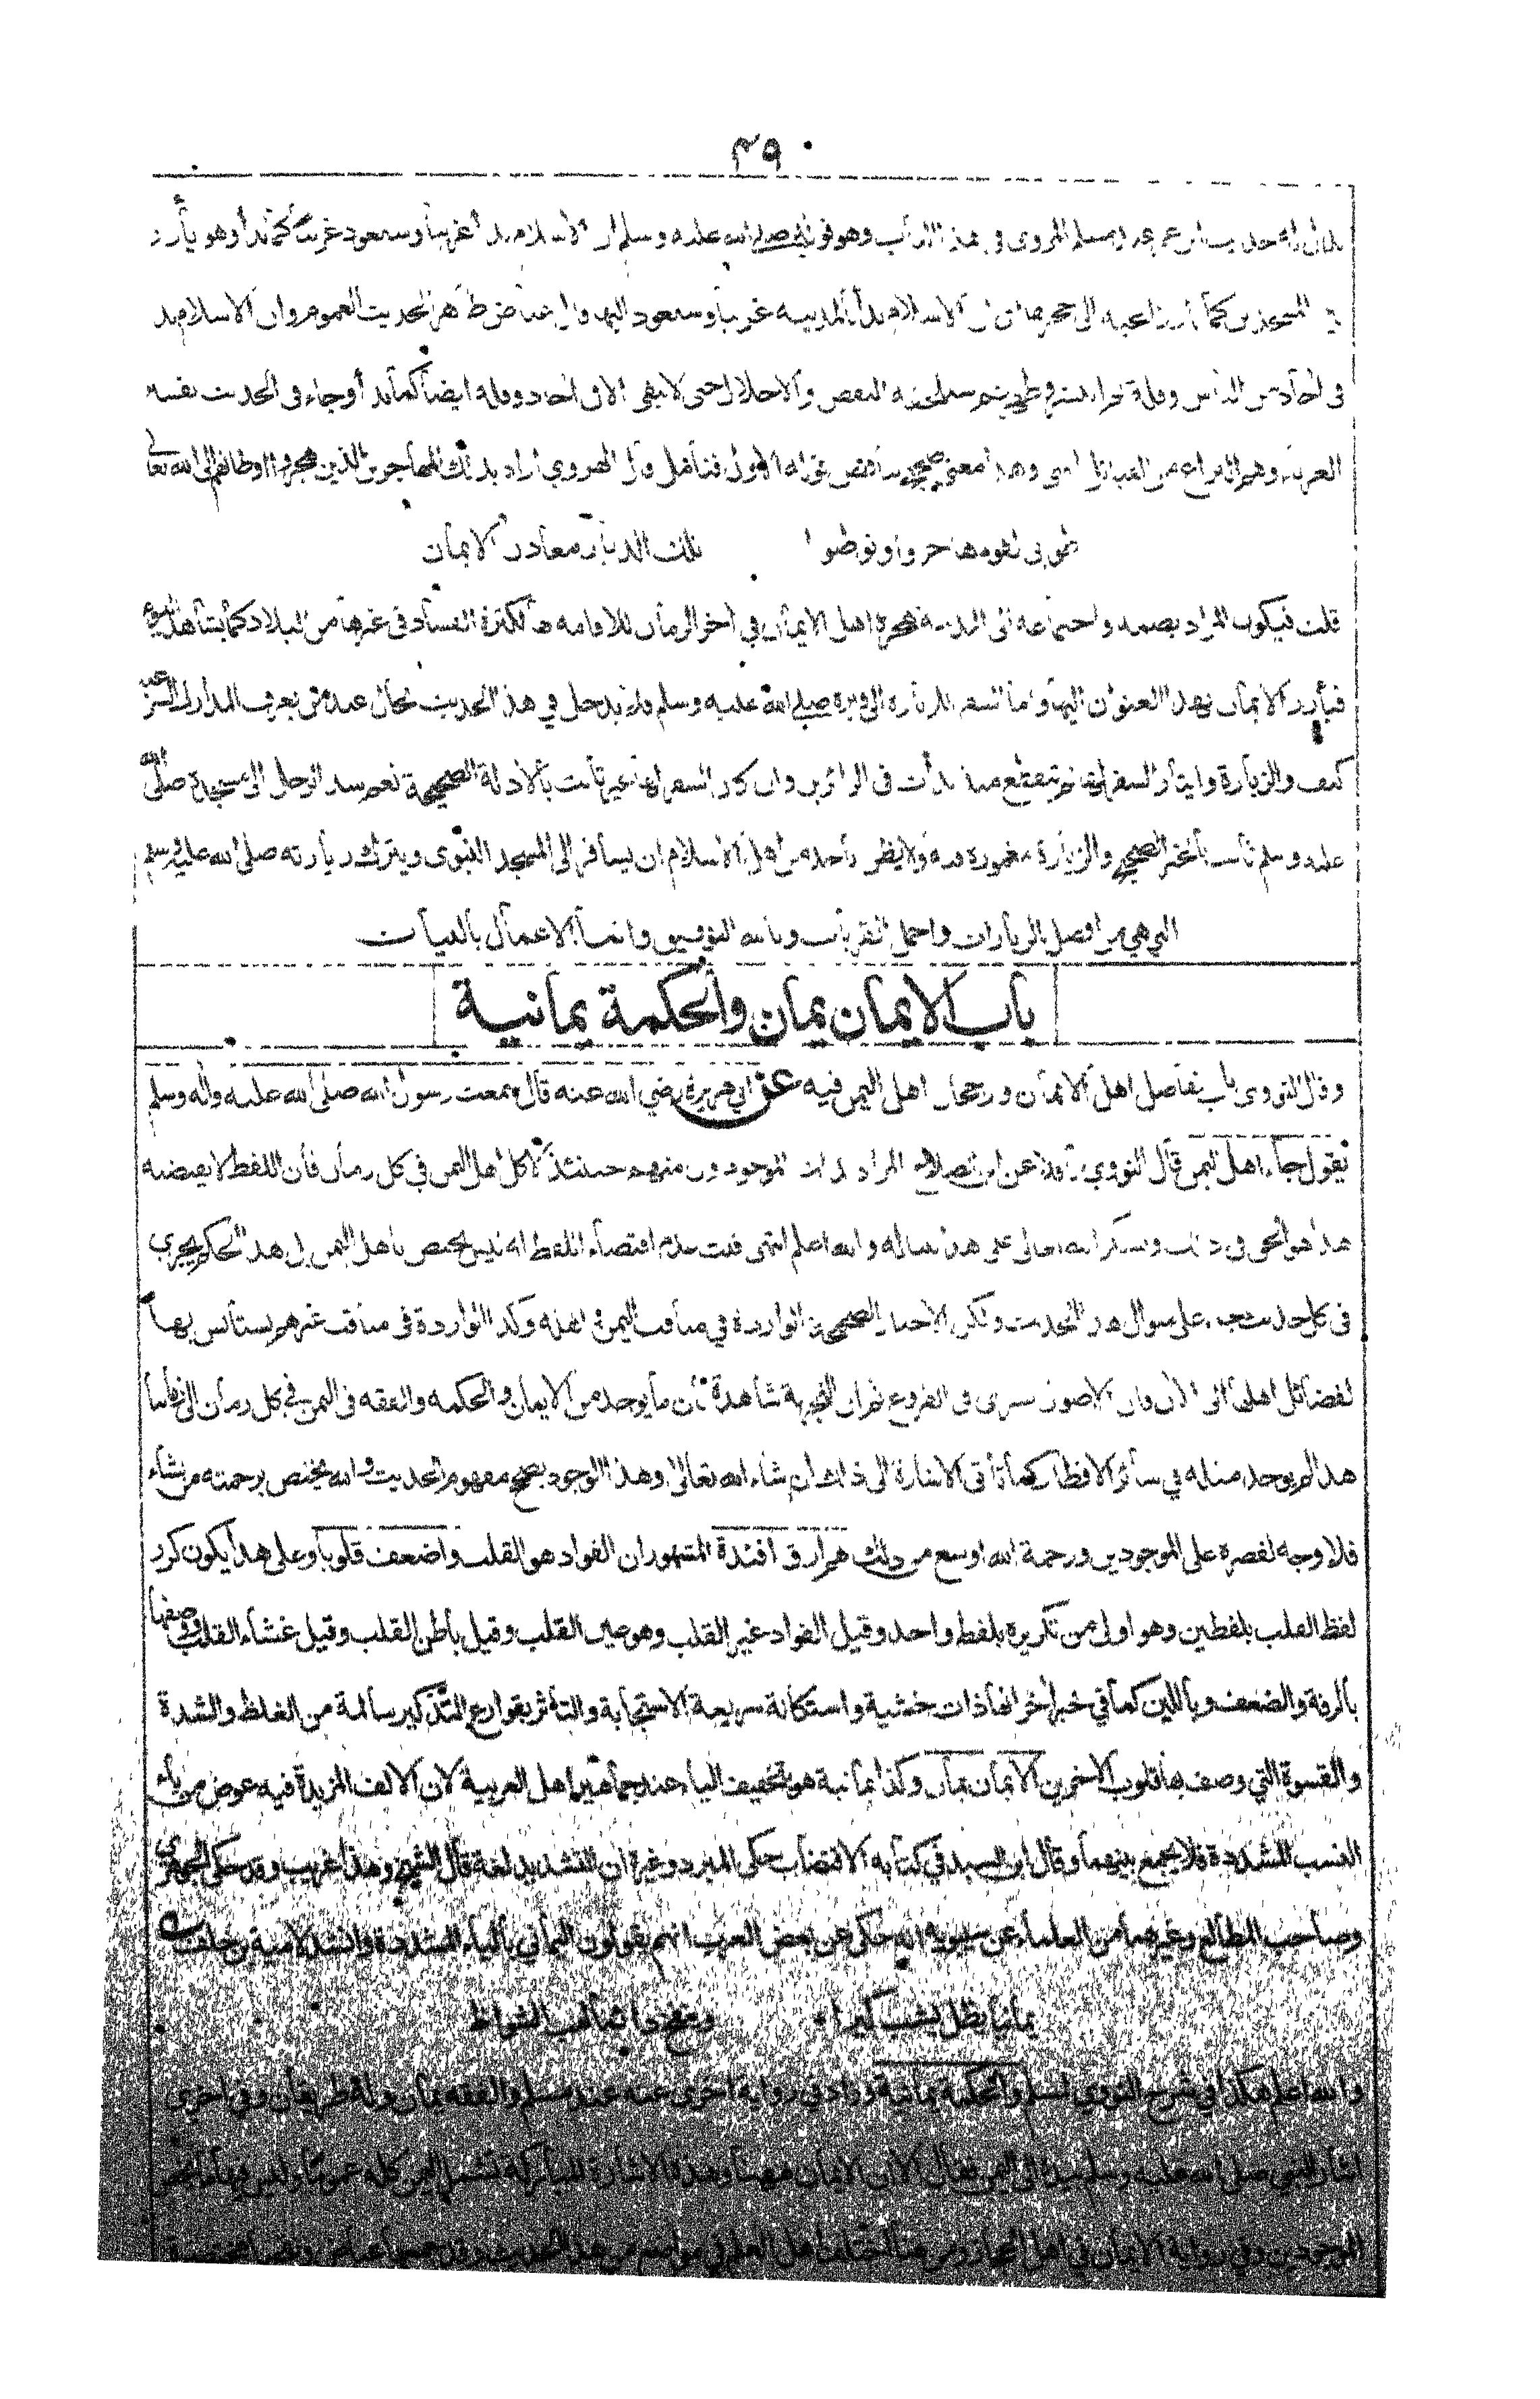 ٣٩٠
حديث ابن عمر عند مسلم المروي في هذا الباب وهو قوله صلى الله عليه وسلم ان الاسلام بدأ غريبا وسيعود غريبا كما بدأ وهو يأرز
المسجدين كما تأرز الحية الى جحرها ان الاسلام بدأ بالمدينة غريبا وسيعود اليها قال عياض ظاهر الحديث العموم وان الاسلام بدأ
في آحاد من الناس وقلة ثم انتشر وظهر ثم سيلحقه النقص والاخلال حتى لا يبقى الا في آحاد وقلة ايضا كما بدأ وجاء في الحديث تفسير
الغرباء وهم النزاع من القبائل قال الهروي اراد بذلك المهاجرين الذين هجروا اوطانهم الى الله تعالى
طوبى لقوم هاجروا وتوطنوا تلك الديار معادن الايمان
قلت فيكون المراد هجرة اهل الايمان في آخر الزمان للاقامة بها لكثرة الفساد في غيرها من البلاد كما
فيأرز الايمان بهذا العنوان اليها واما السفر للزيارة الى قبره صلى الله عليه وسلم فلا يدخل في هذا الحديث بحال عند من يعرف المدارك الشرعية
كيف والزيارة في الزائرين وان كان السفر لها غير ثابت بالأدلة الصحيحة نعم شد الرحل الى مسجده صلى الله
عليه وسلم ثابت بالخبر الصحيح والزيارة مغمورة فيه ولا يظن بأحد من اهل الاسلام ان يسافر الى المسجد النبوي ويترك زيارته صلى الله عليه وسلم
التي هي من افضل الزيارات واجمل القربات وبالله التوفيق وانما الاعمال بالنيات
باب الايمان يمان والحكمة يمانية
وقال النووي باب تفاضل اهل الايمان ورجحان اهل اليمن فيه عن ابي هريرة رضي الله عنه قال سمعت رسول الله صلى الله عليه وآله وسلم
يقول جاء اهل اليمن قال النووي عن ابن الصلاح المراد بذلك الموجودون منهم حينئذ لا كل اهل اليمن في كل زمان فان اللفظ لا يقتضيه
هذا هو الحق في ذلك ونشكر الله تعالى على هدايتنا له والله اعلم انتهى قلت عدم اقتضاء اللفظ له ليس يختص باهل اليمن بل هذا الحكم يجري
في كل حديث على منوال هذا الحديث ولكن الاحاديث الصحيحة الواردة في مناقب اليمن واهله وكذا الواردة في مناقب غيرهم يستأنس بها
لفضائل اهلها الى الآن وان الاصول تسري في الفروع ثم ان التجربة شاهدة بأن ما يوجد من الايمان والحكمة والفقه في اليمن في كل زمان الى زماننا
هذا لم يوجد مثله في سائر الاقطار كما تأتي الاشارة الى ذلك ان شاء الله تعالى وهذا الوجود يصحح مفهوم الحديث والله يختص برحمته من يشاء
فلا وجه لقصره على الموجودين ورحمة الله اوسع من ذلك هم ارق افئدة المشهور ان الفؤاد هو القلب واضعف قلوبا وعلى هذا يكون كرر
لفظ القلب بلفظين وهو اولى من تكريره بلفظ واحد وقيل الفؤاد غير القلب وهو عين القلب وقيل باطن القلب وقيل غشاء القلب ووصفها
بالرقة والضعف وباللين كما في خبر آخر انها ذات خشية واستكانة سريعة الاستجابة والتأثر بقوارع التذكير سالمة من الغلظ والشدة
والقسوة التي وصف بها قلوب الآخرين الايمان يمان وكذا يمانية هو بتخفيف الياء عند جماهير اهل العربية لان الالف المزيدة فيه عوض من ياء
النسب المشددة فلا يجمع بينهما وقال ابن السيد في كتابه الاقتضاب حكى المبرد وغيره ان التشديد لغة قال الشيخ وهذا غريب وقد حكى الجوهري
وصاحب المطالع وغيرهما من العلماء عن سيبويه انه حكى عن بعض العرب انهم يقولون اليماني بالياء المشددة وانشد لامية بن خلف
يمانيا يظل يشب كيرا وينفخ دائما لهب الشواظ
والله اعلم هكذا في شرح النووي لمسلم والحكمة يمانية وزاد في رواية اخرى عنه عند مسلم والفقه يمان وله طريقان وفي اخرى
اشار النبي صلى الله عليه وسلم بيده الى اليمن فقال ألا ان الايمان ههنا وهذه الاشارة المباركة تشمل اليمن كله عموما وليس فيها
الموجودين وفي رواية الايمان في اهل الحجاز ومن هنا اختلف اهل العلم في مواضع من هذا الحديث وقد جمعها عياض